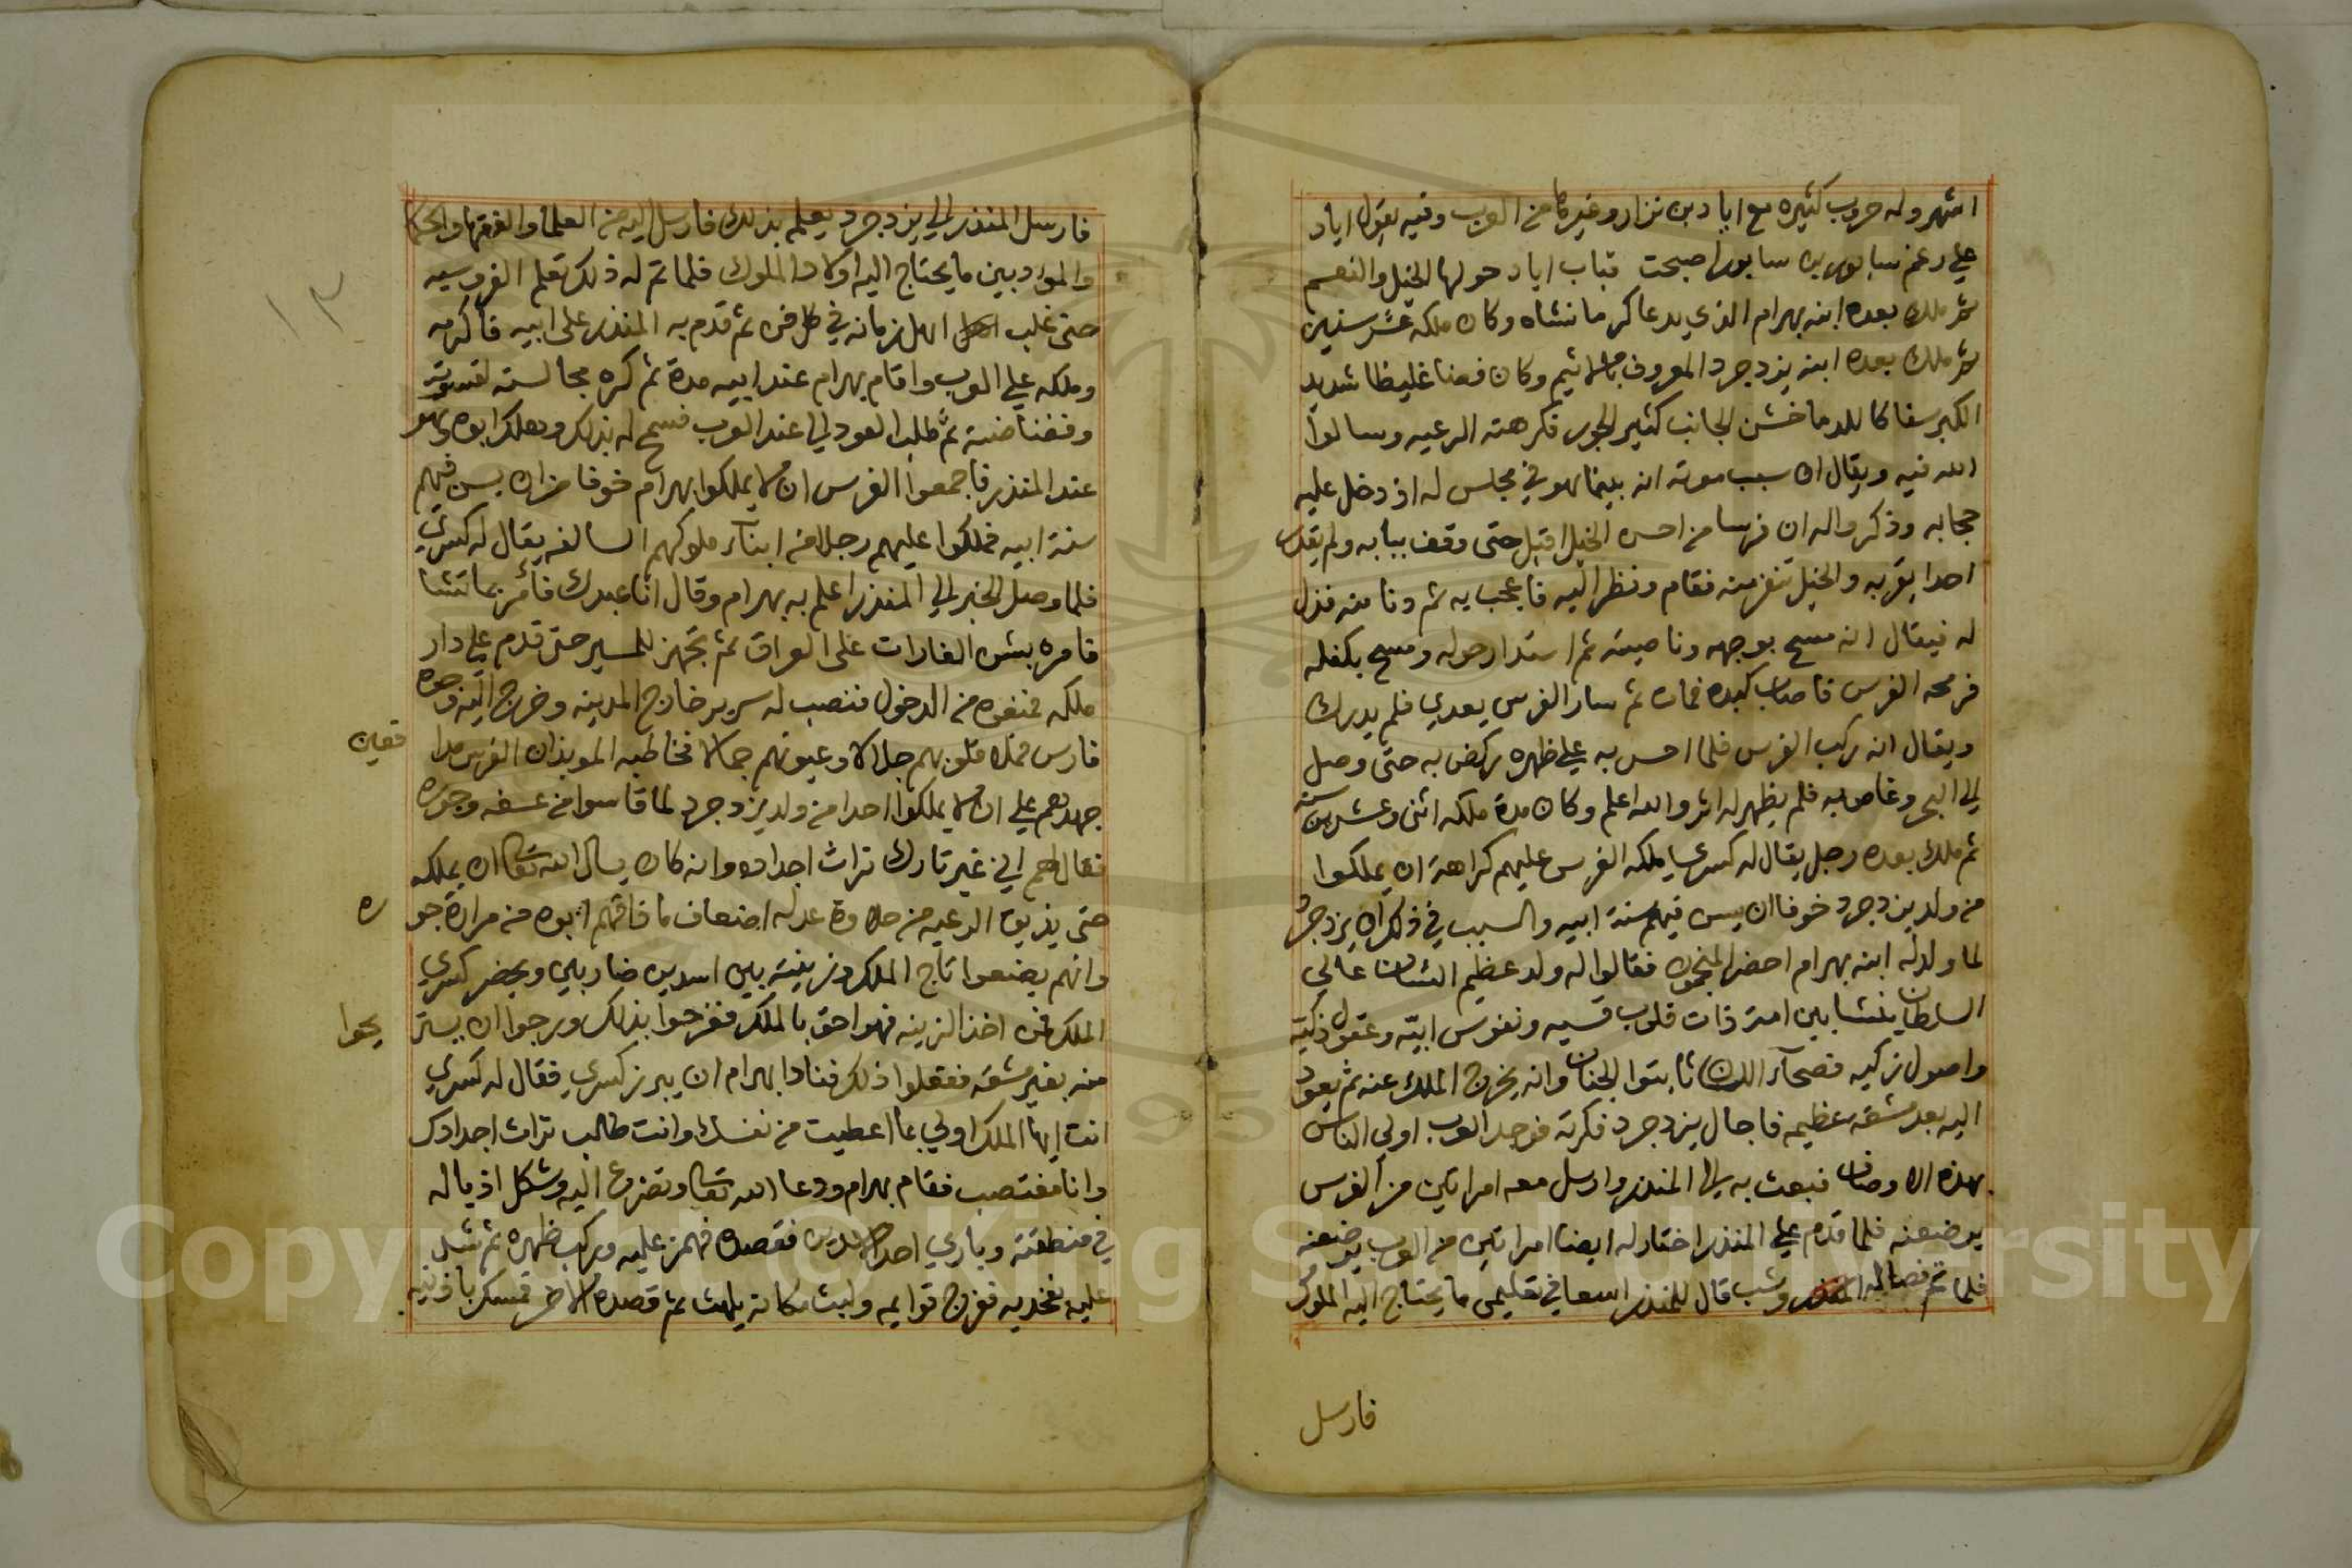 اشهر وله حروب كثيره مع اياد بن نزار وغيرها من العرب وفيه يقول اياد
علي رغم سابور بن سابور اصبحت قباب اياد حولها الخيل والنعم
ثم ملك بعده ابنه بهرام الذي يدعا كرمانشاه وكان ملكه عشر سنين
ثم ملك بعده ابنه يزدجرد المعروف بالاثيم وكان فضا غليظا شديد
الكبر سفاكا للدما خشن الجانب كثير الجور فكرهته الرعيه وسالوا
الله فيه ويقال ان سبب موته انه بينما هو في مجلس له اذ دخل عليه
حجابه وذكر واله ان فرسا من احسن الخيل اقبل حتى وقف ببابه ولم يقدر
احدا يقربه والخيل تنفر منه فقام ونظر اليه فاعجب به ثم دنا منه فذل
له فيقال انه مسح بوجهه وناصيته ثم استدار حوله ومسح بكفله
فرمحه الفرس فاصاب كبده فمات ثم سار الفرس يعدي فلم يدرك
ويقال انه ركب الفرس فلما احس به علي ظهره ركض به حتى وصل
الي البحر وغاص به فلم يظهر له اثر والله اعلم وكان مدة ملكه اثنى وعشرين سنة
ثم ملك بعده رجل يقال له كسري ملكه الفرس عليهم كراهة ان يملكوا
من ولد يزدجرد خوفا ان يسن فيهم سنة ابيه والسبب في ذلك ان يزدجرد
لما ولد له ابنه بهرام احضر المنجمون فقالوا له ولد عظيم الشان عالي
السلطان ينشا بين امة ذات قلوب قسيه ونفوس ابيّه وعقول ذكيّه
واصول زكيه فصحآء اللسان ثابتوا الجنان وانه يخرج الملك عنه ثم يعود
اليه بعد مشقه عظيمه فاجال يزدجرد فكرته فوجد العرب اولي الناس
بهذه الاوصاف فبعث به الي المنذر وارسل معه امراتين من الفرس
يرضعنه فلما قدم علي المنذر اختار له ايضا امراتين من العرب يرضعنه
فلما تم فصاله وشب قال للمنذر اسعا في تعليمي ما يحتاج اليه الملوك
فارسل
١٣
فارسل المنذر الي يزدجرد يعلم بذلك فارسل اليه من العلما والفقها والحكما
والموادبين ما يحتاج اليه اولاد الملوك فلما تم له ذلك تعلم الفروسيه
حتى غلب اهل زمانه في كل فن ثم قدم به المنذر على ابيه فاكرمه
وملكه علي العرب واقام بهرام عند ابيه مدة ثم كره مجالسته لقسوته
وفضاضته ثم طلب العود الي عند العرب فسمح له بذلك وهلك ابوه وهو
عند المنذر فاجمعوا الفرس ان لا يملكوا بهرام خوفا من ان يسن فيهم
سنة ابيه فملكوا عليهم رجلا من ابنآء ملوكهم السالفه يقال له كسري
فلما وصل الخبر الي المنذر اعلم به بهرام وقال انا عبدك فأمر بما تشا
فامره بشن الغارات على العراق ثم تجهز للمسير حتى قدم علي دار
ملكه فمنعوه من الدخول فنصب له سرير خارج المدينه وخرج اليه وجوه
فارس فملا قلوبهم جلالا وعيونهم جمالا فخاطبه الموبذان الفرس مدا
فعين
جهدهم علي ان لا يملكوا احدا من ولد يزدجرد لما قاسوا من عسفه وجوره
فقال لهم اني غير تارك تراث اجداده وانه كان يسال الله تعالى ان يملكه
حتى يذيق الرعيه من حلاوة عدله اضعاف ما ذاقهم ابوه من مرارة جو
ره
وانهم يضعوا تاج الملك وزينته بين اسدين ضاريين ويحضر كسري
الملك فمن اخذ الزينه فهو احق بالملك ففرحوا بذلك ورجوا ان يستر
يحوا
منه بغير مشقه ففعلوا ذلك فنادا بهرام ان يبرز كسري فقال له كسري
انت ايها الملك اولي بما اعطيت من نفسك وانت طالب تراث اجدادك
وانا مغتصب فقام بهرام ودعا الله تعالى وتضرع اليه وشكل اذياله
في منطقته وبادي احد الاسدين فقصده فهمز عليه وركب ظهره ثم شد
عليه بفخديه ففرج قوايمه ولبث مكانه يلهث ثم قصده الاخر فمسك باذنيه